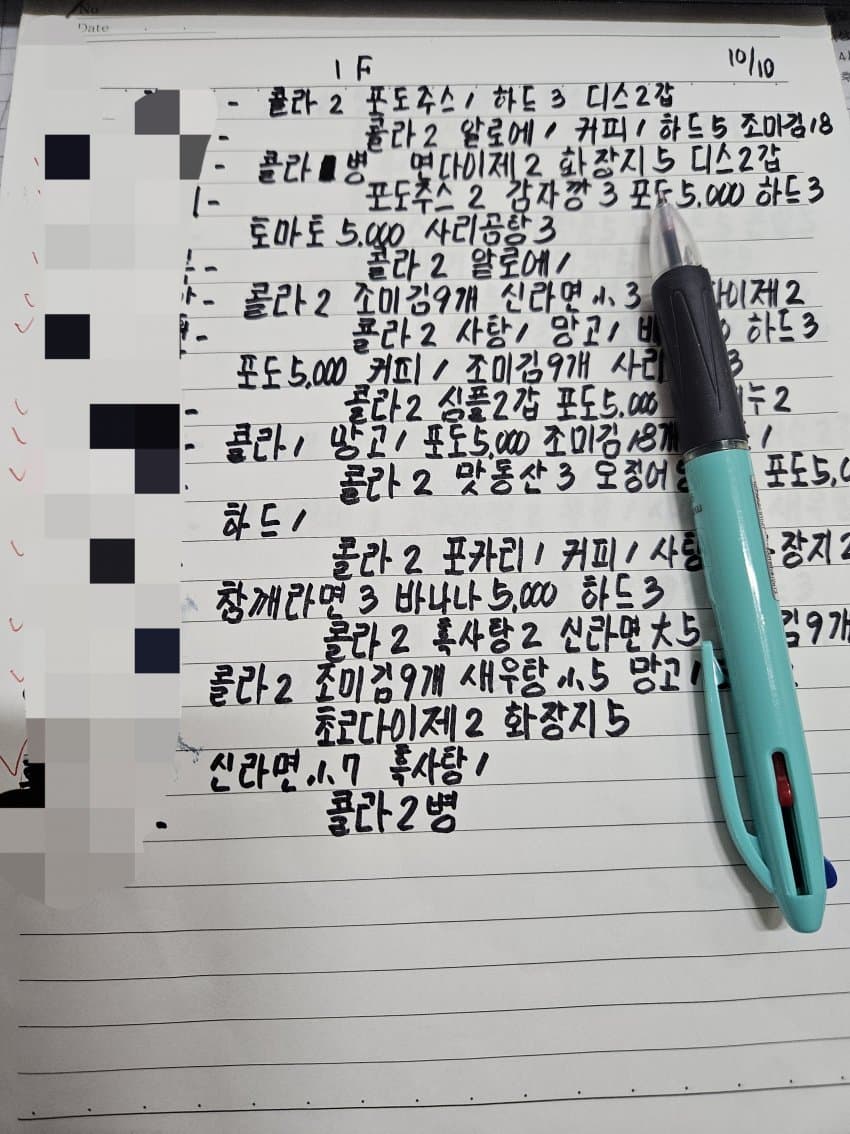 No
Date
1F 10/10
- 콜라 2 포도주스 1 하드 3 디스 2갑
- 콜라 2 알로에 1 커피 1 하드 5 조미김 18
- 콜라 병 면다이제 2 화장지 5 디스 2갑
- 포도쥬스 2 감자깡 3 포도 5,000 하드 3
토마토 5,000 사리곰탕 3
- 콜라 2 알로에 1
- 콜라 2 조미김 9개 신라면 小 3 다이제 2
- 콜라 2 사탕 1 망고 1 하드 3
포도 5,000 커피 1 조미김 9개 사리 3
- 콜라 2 심플 2갑 포도 5,000 2
- 콜라 1 망고 1 포도 5,000 조미김 18개 1
콜라 2 맛동산 3 오징어 포도
하드 1
콜라 2 포카리 1 커피 1 사탕 장지 2
참깨라면 3 바나나 5,000 하드 3
콜라 2 흑사탕 2 신라면 大 5 김 9개
콜라 2 조미김 9개 새우탕 小 5 망고 1
초코다이제 2 화장지 5
신라면 小 7 흑사탕 1
콜라 2병